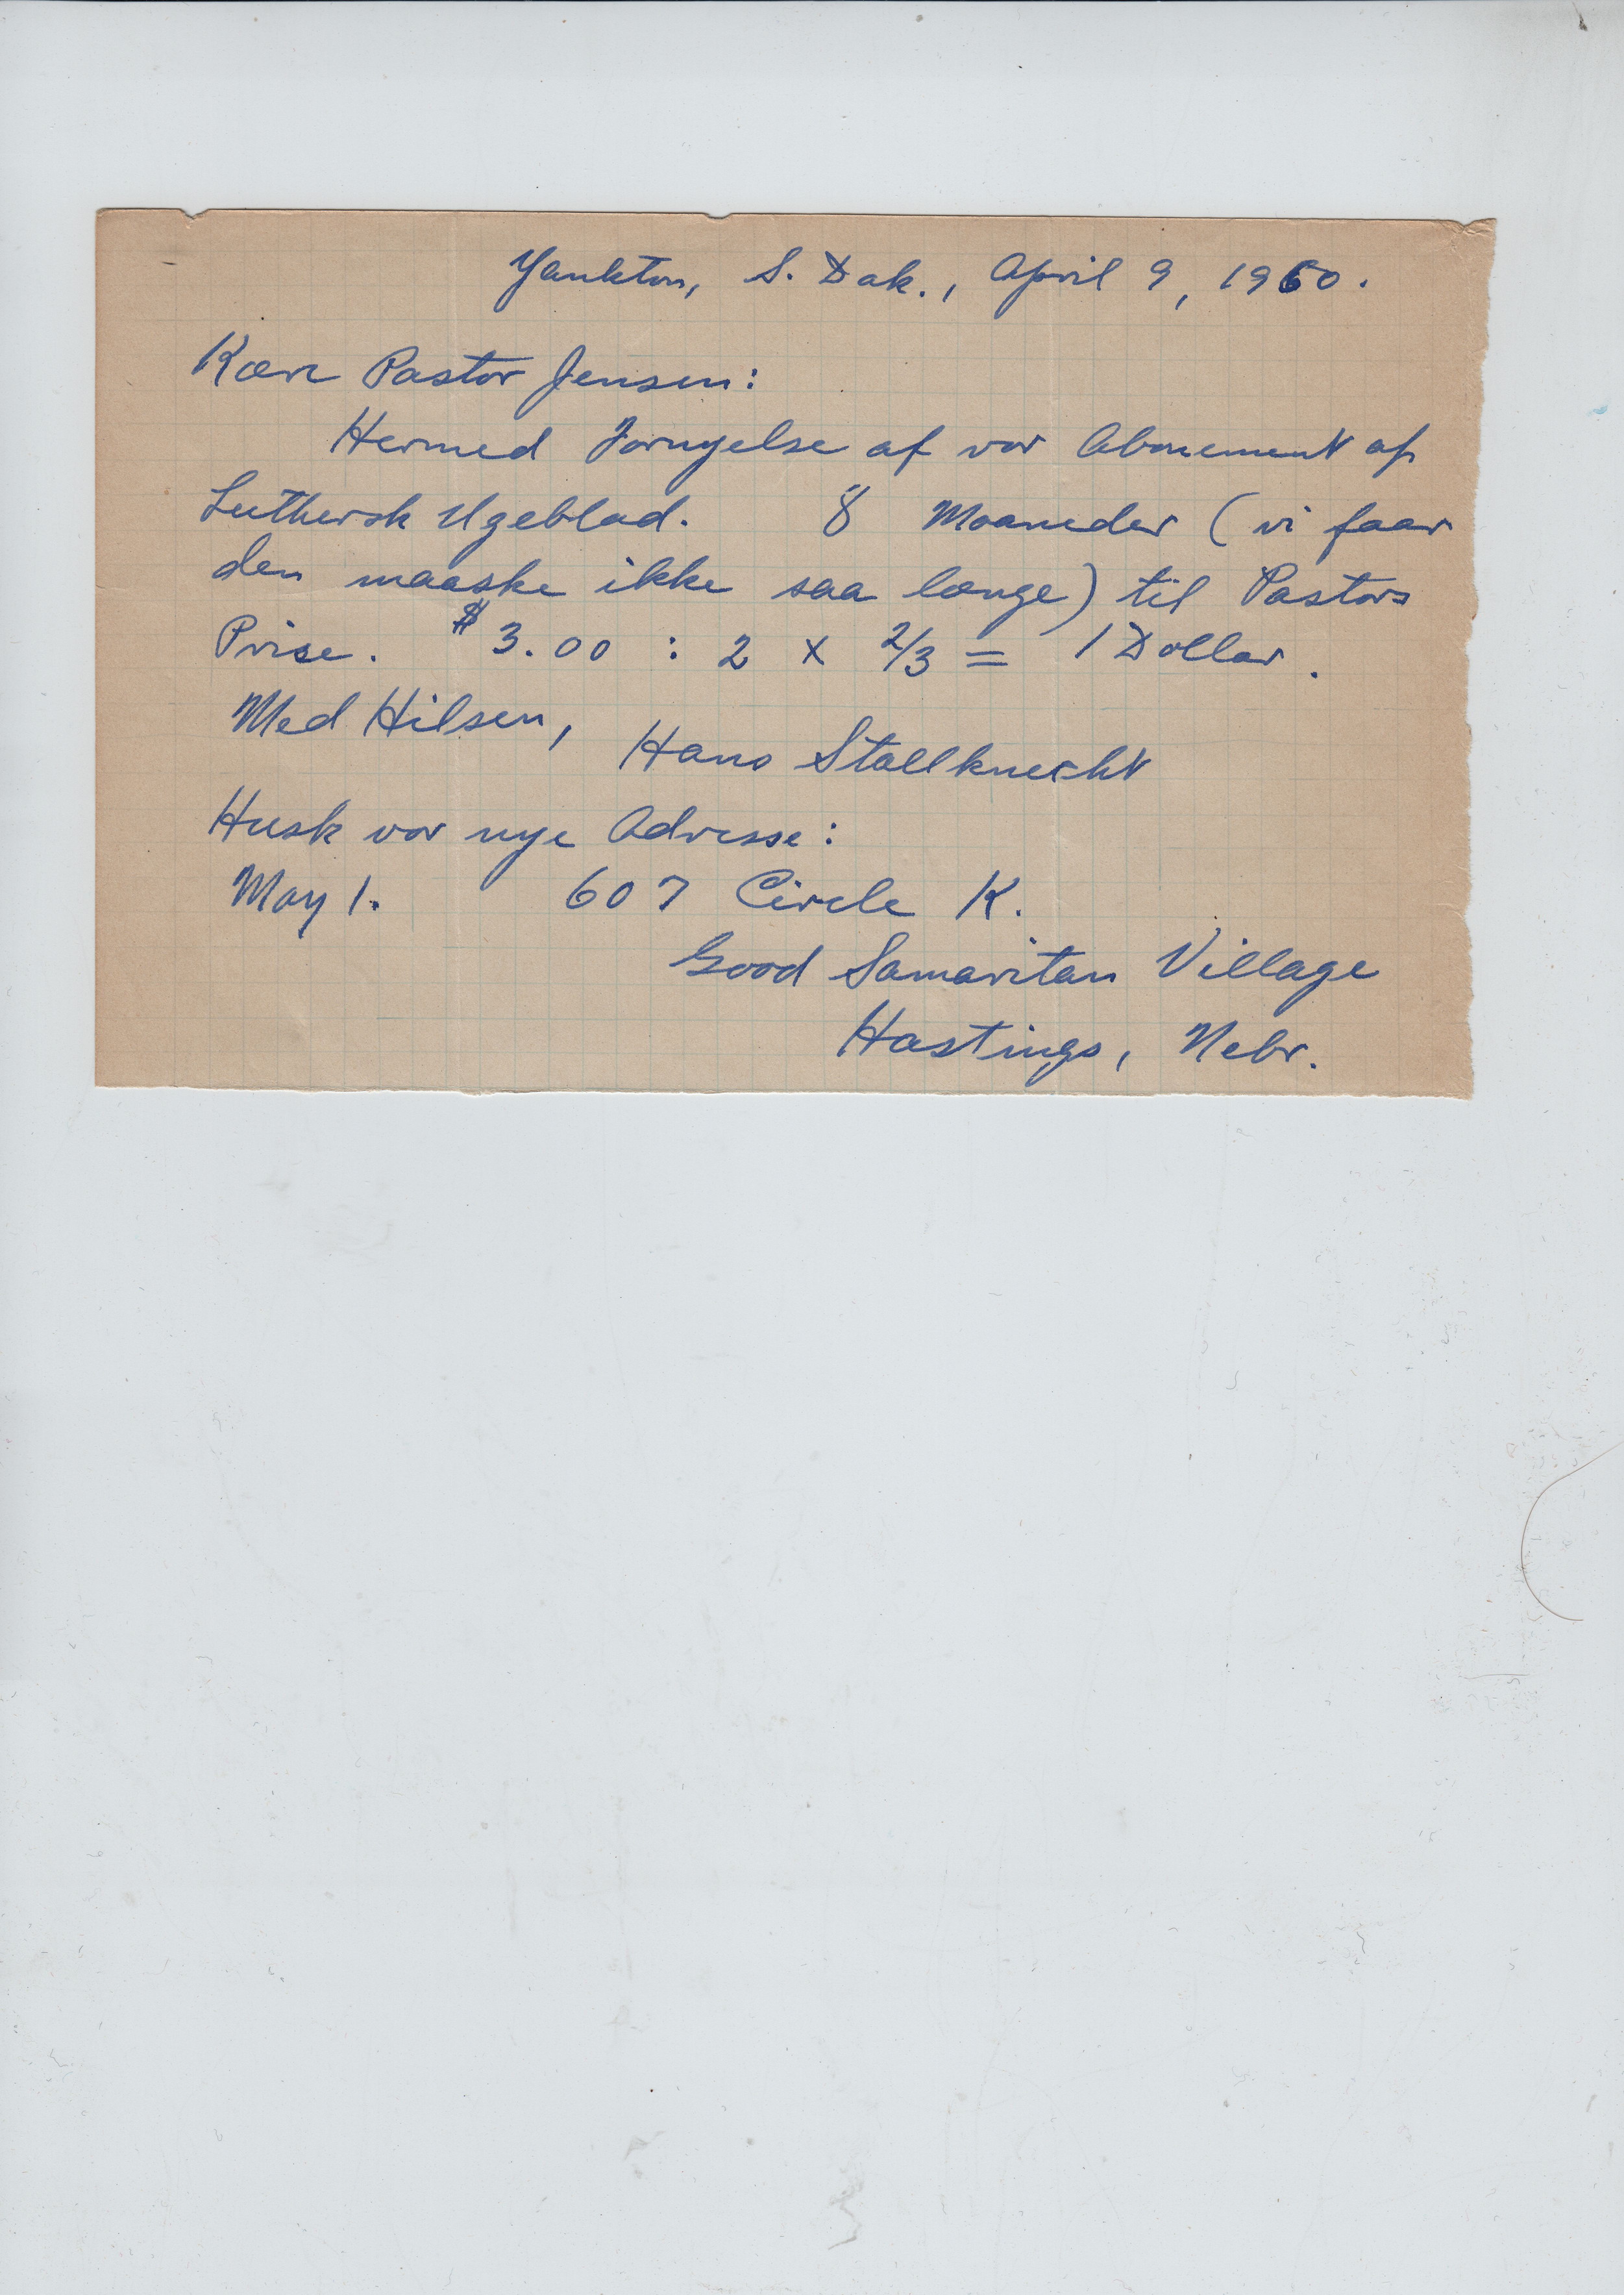 Yankton, S. Dak., April 9, 1960.
Kære Pastor Jensen:
Hermed Fornyelse af vor Abonement af
Luthersk Ugeblad. 8 Maaneder (vi faar
den maaske ikke saa længe) til Pastors
Prise. $3.00 : 2 x 2/3 = 1 Dollar.
Med Hilsen,
Hans Stallknecht
Husk vor nye Adresse:
May 1. 607 Circle K.
Good Samaritan Village
Hastings, Nebr.